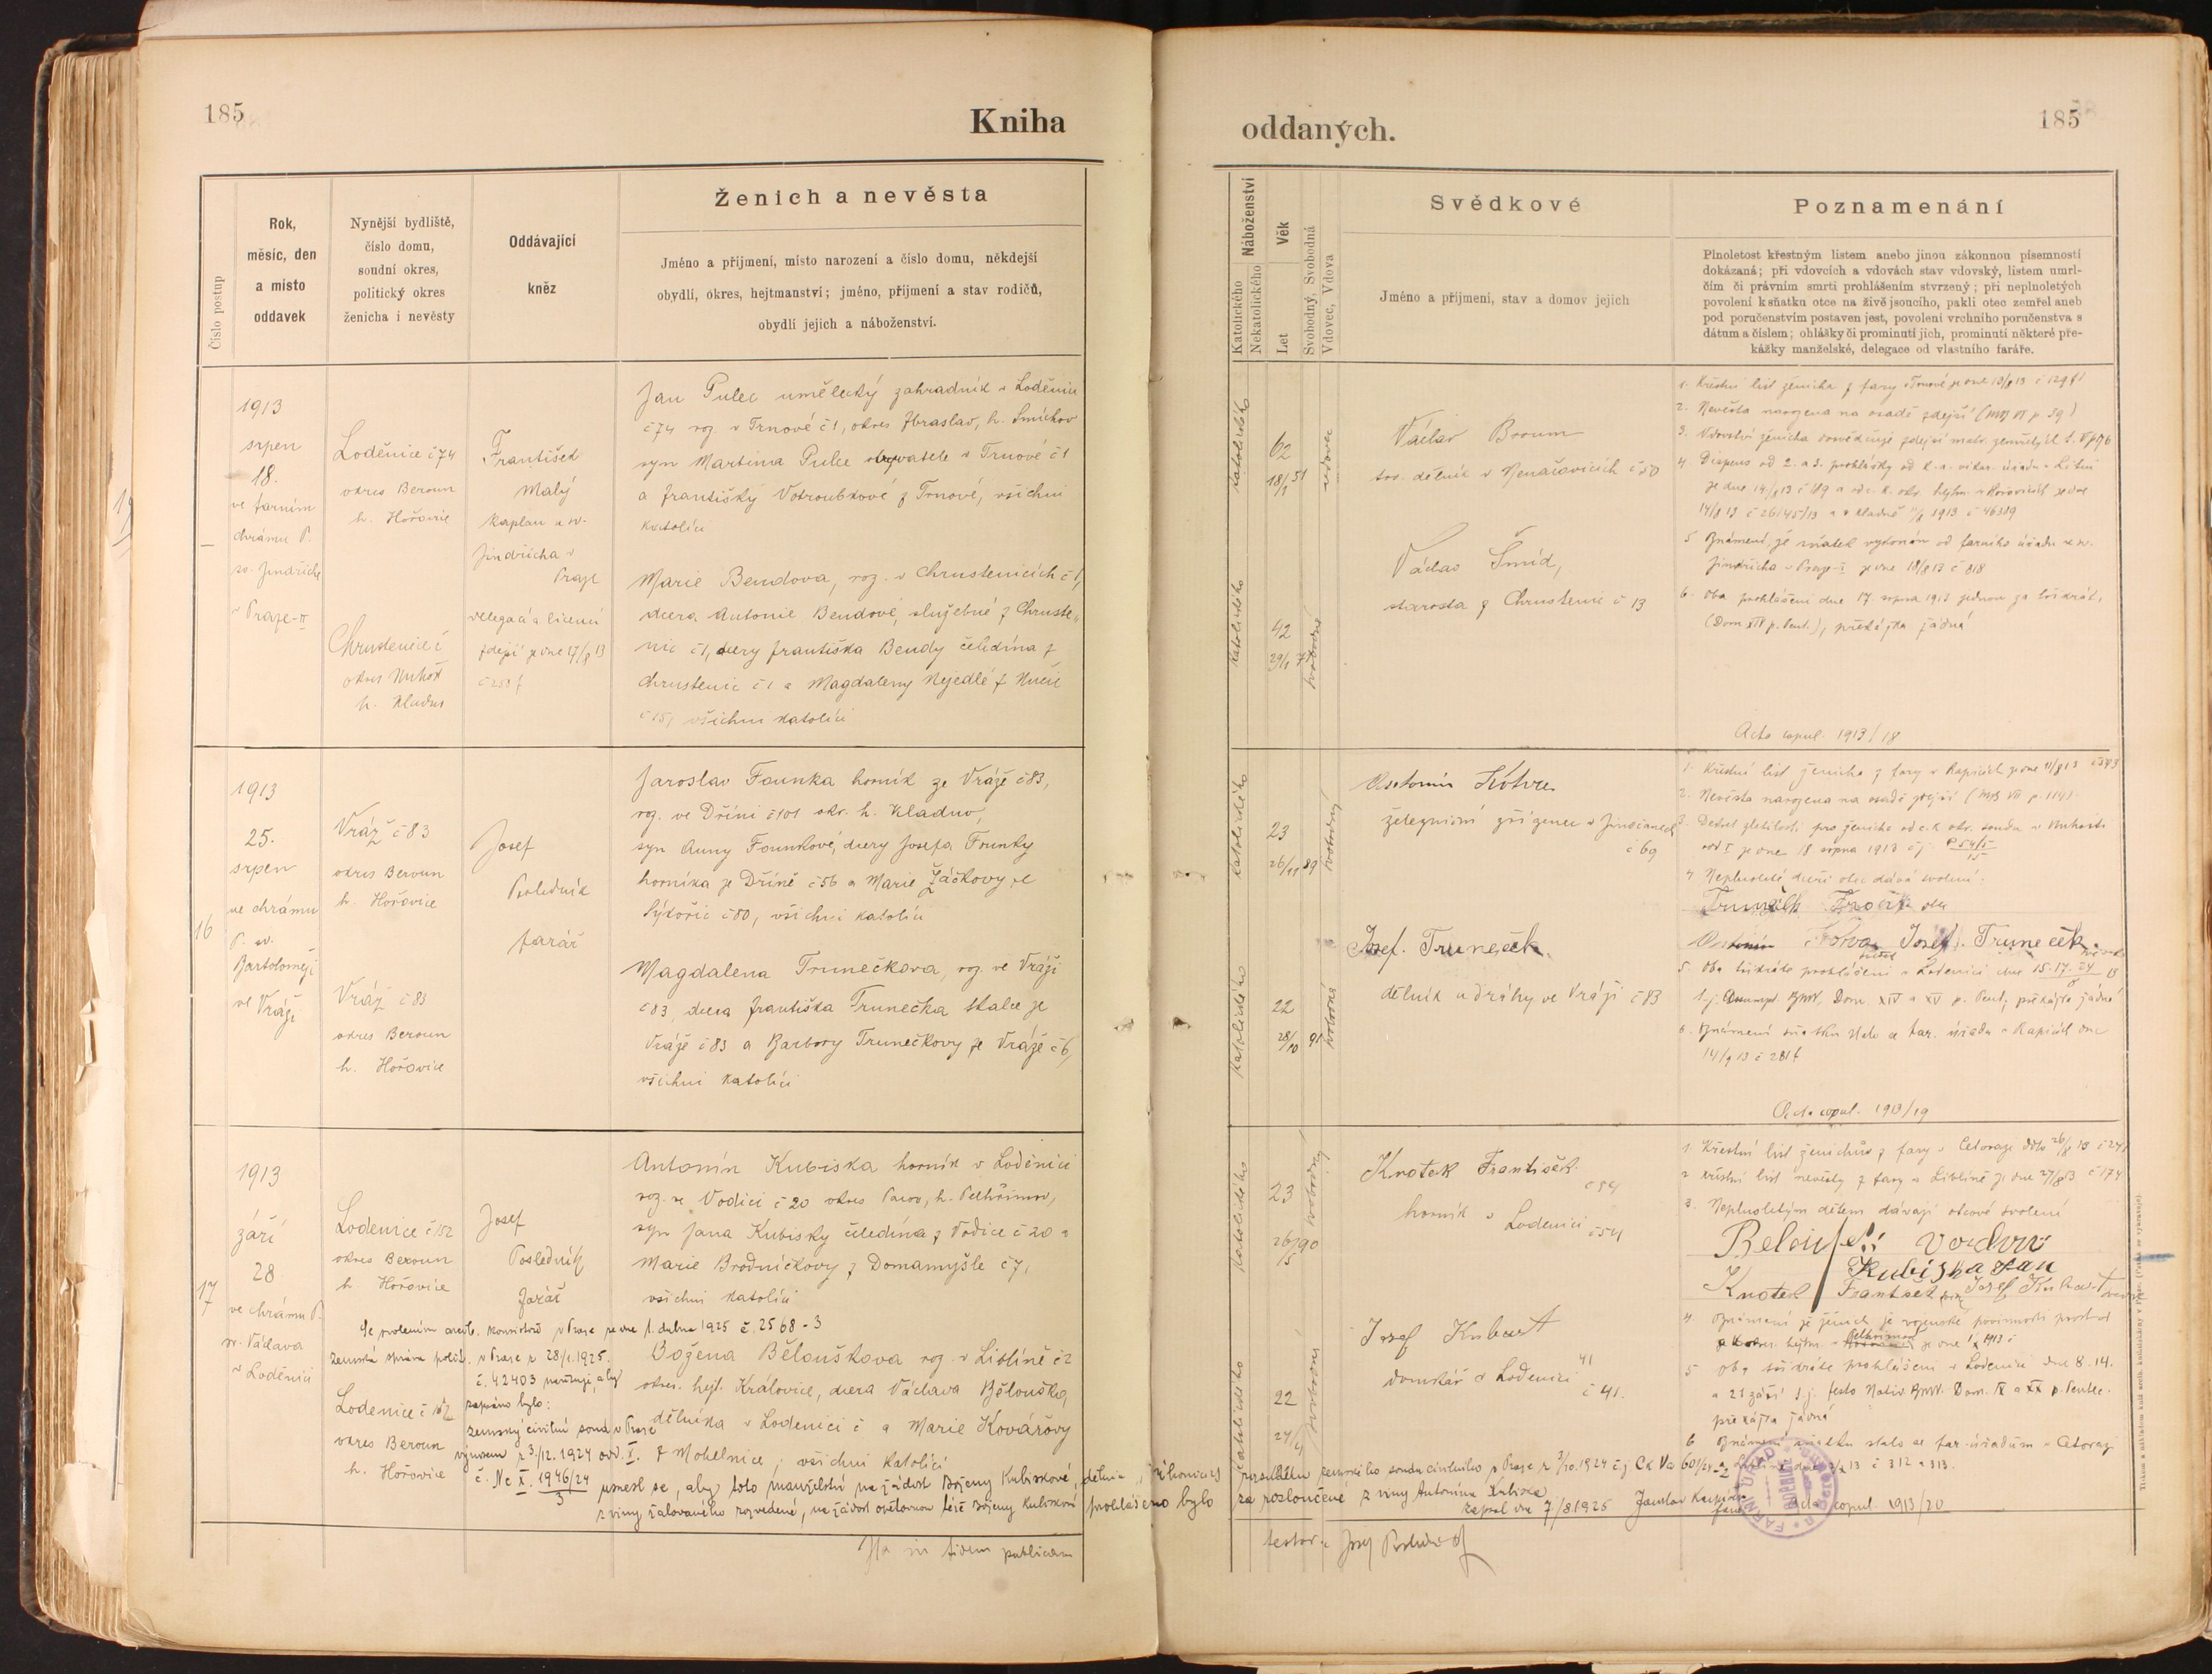 185
Kniha
Číslo postup
Rok,
měsíc, den
a místo
oddavek
Nynější bydliště,
číslo domu,
soudní okres,
politický okres
ženicha i nevěsty
Oddávající
kněz
Ženich a nevěsta
Jméno a příjmení, místo narození a číslo domu, někdejší
obydlí, okres, hejtmanství; jméno, příjmení a stav rodičů,
obydlí jejich a náboženství.
1913
srpen
18.
ve farním
chrámu P.
sv. Jindřicha
v Praze-II
Loděnice č 74
okres Beroun
h. Hořovice
Chrustenice č
okres
h. Kladno
František
Malý
kaplan u sv.
Jindřicha v
Praze
delegací a licencí
zdejší ze dne 17/8 13
Jan Pulec umělecký zahradník v Loděnici
č 74 roz. v Trnové č 1, okres Zbraslav, h. Smíchov
syn Martina Pulce obyvatele v Trnové č 1
a Františky Votroubkové z Trnové, všichni
katolíci
Marie Bendova, roz. v Chrustenicích č 1,
dcera Antonie Bendové, služebné z Chruste„
nic č 1, dcery Františka Bendy čeledína z
Chrustenic č 1 a Magdaleny Nejedlé z Nučic
č 15, všichni katolíci
16
1913
25.
srpen
ve chrámu
P. sv.
Bartoloměje
ve Vráži
Vráž č 83
okres Beroun
h. Hořovice
Vráž č 83
okres Beroun
h. Hořovice
Josef
Posledník
farář
Jaroslav Founka horník ze Vráže č 83,
roz. ve Dříni č 101 okr. h. Kladno,
syn Anny Founkové, dcery Josefa Founky
horníka ze Dříně č 56 a Marie Žáčkovy ze
č 80, všichni katolíci
Magdalena Trunečkova, roz. ve Vráži
č 83, dcera Františka Trunečka skalce ze
Vráže č 83 a Barbory Trunečkovy ze Vráže č 6,
všichni katolíci
17
1913
září
28
ve chrámu P.
sv. Václava
v Loděnici
Lodenice č 152
okres Beroun
h. Hořovice
Lodenice č
okres Beroun
h. Hořovice
Josef
Posledník
farář
Antonín Kubiska horník v Loděnici
roz. ve Vodici č 20 okres Pacov, h. Pelhřimov,
syn Jana Kubisky čeledína z Vodice č 20 a
Marie Brodníčkovy z Domamyšle č 7,
všichni katolíci
Se svolením arcib. konsistoře v Praze ze dne 1. dubna 1925 č. 2568-3
zemská správa polit. v Praze z 28/1.1925.
č. 42403 nařizuje, aby
zapsáno bylo:
zemský civilní soud v Praze
výnosem z 3./12. 1924 odd. X.
č. Nc X. 1946/24
3
Božena Běloušková roz. v Liblíně č 2
okres. hejt. Kralovice, dcera Václava Běloušky,
dělníka v Lodenici č a Marie Kovářovy
z Mohelnice, všichni katolíci
usnesl se, aby toto manželství na žádost Boženy Kubiskové, dělnice,
z viny žalovaného rozvedené, na žádost opětovnou též Boženy Kubiskové prohlášeno bylo
Ita in fidem publicam
oddaných.
185
Náboženství
Katolického
Nekatolického
Věk
Let
Svobodný, Svobodná
Vdovec, Vdova
Svědkové
Jméno a příjmení, stav a domov jejich
Poznamenání
Plnoletost křestným listem anebo jinou zákonnou písemností
dokázaná; při vdovcích a vdovách stav vdovský, listem umrl-
čím či právním smrti prohlášením stvrzený; při neplnoletých
povolení k sňatku otce na živě jsoucího, pakli otec zemřel aneb
pod poručenstvím postaven jest, povolení vrchního poručenstva s
dátum a číslem; ohlášky či prominutí jich, prominutí některé pře-
kážky manželské, delegace od vlastního faráře.
katolického
62
18/1 51
vdovec
katolického
42
29/1 71
svobodná
Václav Broum
tov. dělník v Nenačovicích č 50
Václav Šmíd,
starosta z Chrustenic č 13
1. Křestní list ženicha z fary v Trnové ze dne 13/8 13 č 129 f
2. Nevěsta narozena na osadě zdejší (MB VI p. 39)
3. Vdovství ženicha dosvědčuje zdejší matr. zemřelých
4 Dispens od 2. a 3. prohlášky od k. a. vikar. úřadu v Litni
ze dne 14/8 13 č 189 a od c. k. okr. hejtm. v Hořovicích ze dne
14/8 13 č 26145/13 a v Kladně 1913 č 46389
5 Oznámení, že sňatek vykonán od farního úřadu u sv.
Jindřicha v Praze-II ze dne 18/8 13 č 818
6. Oba prohlášeni dne 17. srpna 1913 jednou za třikrát,
(Dom XIV p. Pent.), překážka žádná
Acta copul. 1913/18
katolického
23
26/11 89
svobodný
katolického
22
28/10 91
svobodná
Antonín Kotva
železniční zřízenec v Jinočanech
č 69
Josef Truneček
dělník u dráhy ve Vráži č 83
1. Křestní list ženicha z fary v Kapicích ze dne 11/8 13 č 343
2. Nevěsta narozena na osadě zdejší (MB VII p. 114)
3. Dekret zletilosti pro ženicha od c. k okr. soudu v
odd I ze dne 18. srpna 1913 č j. P 54/5
15
4 Neplnoleté dceři otec dává svolení:
otec
Antonín Kotva Josef Truneček
svědek
5. Oba třikráte prohlášeni v Lodenici dne 15. 17. 24/8 13
t. j. Assumpt. BMV, Dom XIV a XV p. Pent; překážka žádná
6. Oznámení sňatku stalo se far. úřadu v Kapicích dne
14/9 13 č 281 f
Acta copul. 1913/19
katolického
23
26/5 90
svobodný
katolického
22
svobodná
Knotek František
č 54
horník v Lodenici č 54
Josef Kubart
41
domkář v Lodenici č 41.
1. Křestní list ženichův z fary v Cetorazi ddto 26/8 13 č 241
2 křestní list nevěsty z fary v Liblíně ze dne 27/8 13 č 174
3. Neplnoletým dětem dávají otcové svolení
Kubiska Jan
Knotek František Josef Kubart
4. Oznámení že ženich je vojenské povinnosti prost od
Pelhřimov
5 Oba třikráte prohlášeni v Lodenici dne 8. 14.
a 21 září t. j. festo Nativ. BMV. Dom. IX a XX p. Pentec.
překážka žádná
6 Oznámení sňatku stalo se far. úřadům v Cetorazi
č 312 a 313.
rozsudku zemského soudu civilního v Praze z 3/10. 1924 č j. Ck Va 601/24-2
za rozloučené z viny Antonína Kubiska
zapsal dne 7/8 1925 Jaroslav
acta copul. 1913/20
testor: Josef Posledník
FARNÍ ÚŘAD